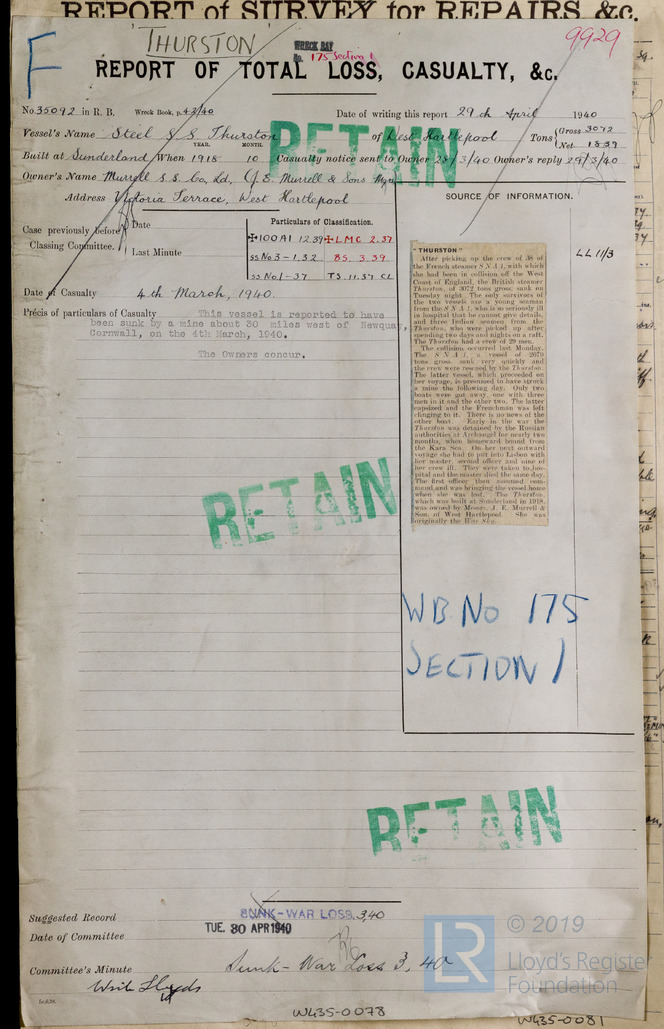 REPORT of SURVEY for REPAIRS, &c.
'THURSTON'
WRECK BAY
No. 175 Section 1
9929
F
REPORT OF TOTAL LOSS, CASUALTY, &c.
No. 35092 in R. B. Wreck Book, p. 42/40 Date of writing this report 29th April 1940
Vessel's Name Steel S S Thurston of West Hartlepool Tons { Gross 3072
Net 1839
YEAR. MONTH.
Built at Sunderland When 1918 10 Casualty notice sent to Owner 28/3/40 Owner's reply 29/3/40
RETAIN
Owner's Name Murrell S.S. Co, Ld, (J. E. Murrell & Sons Mgrs
Address Victoria Terrace, West Hartlepool
SOURCE OF INFORMATION.
Case previously before Classing Committee. { Date
Last Minute
Particulars of Classification.
✠100A1 12.39 ✠LMC 2.37
SS No 3 - 1.32 BS. 3.39
SS No 1 - 37 TS. 11.37 CL
Date of Casualty 4th March, 1940.
Précis of particulars of Casualty This vessel is reported to have
been sunk by a mine about 30 miles west of Newquay,
Cornwall, on the 4th March, 1940.
The Owners concur.
LL 11/3
"THURSTON"
After picking up the crew of 38 of
the French steamer S N A 1, with which
she had been in collision off the West
Coast of England, the British steamer
Thurston, of 3072 tons gross, sank on
Tuesday night. The only survivors of
the two vessels are a young seaman
from the S N A 1, who is so seriously ill
in hospital that he cannot give details,
and three Indian seamen from the
Thurston, who were picked up after
spending two days and nights on a raft.
The Thurston had a crew of 29 men.
The collision occurred last Monday.
The S N A 1, a vessel of 2670
tons gross, sank very quickly and
the crew were rescued by the Thurston.
The latter vessel, which proceeded on
her voyage, is presumed to have struck
a mine the following day. Only two
boats were got away, one with three
men in it and the other two. The latter
capsized and the Frenchman was left
clinging to it. There is no news of the
other boat. Early in the war the
Thurston was detained by the Russian
authorities at Archangel for nearly two
months, when homeward bound from
the Kara Sea. On her next outward
voyage she had to put into Lisbon with
her master, second officer and nine of
her crew ill. They were taken to hos-
pital and the master died the same day.
The first officer then assumed com-
mand and was bringing the vessel home
when she was lost. The Thurston,
which was built at Sunderland in 1918,
was owned by Messrs. J. E. Murrell &
Son, of West Hartlepool. She was
originally the War Sky.
RETAIN
WB No 175
SECTION 1
RETAIN
Suggested Record SUNK-WAR LOSS. 3,40
Date of Committee TUE. 30 APR 1940
Committee's Minute Sunk - War Loss 3, 40
Write Lloyds
LR
© 2019
Lloyd's Register
Foundation
W435-0078
W435-0081